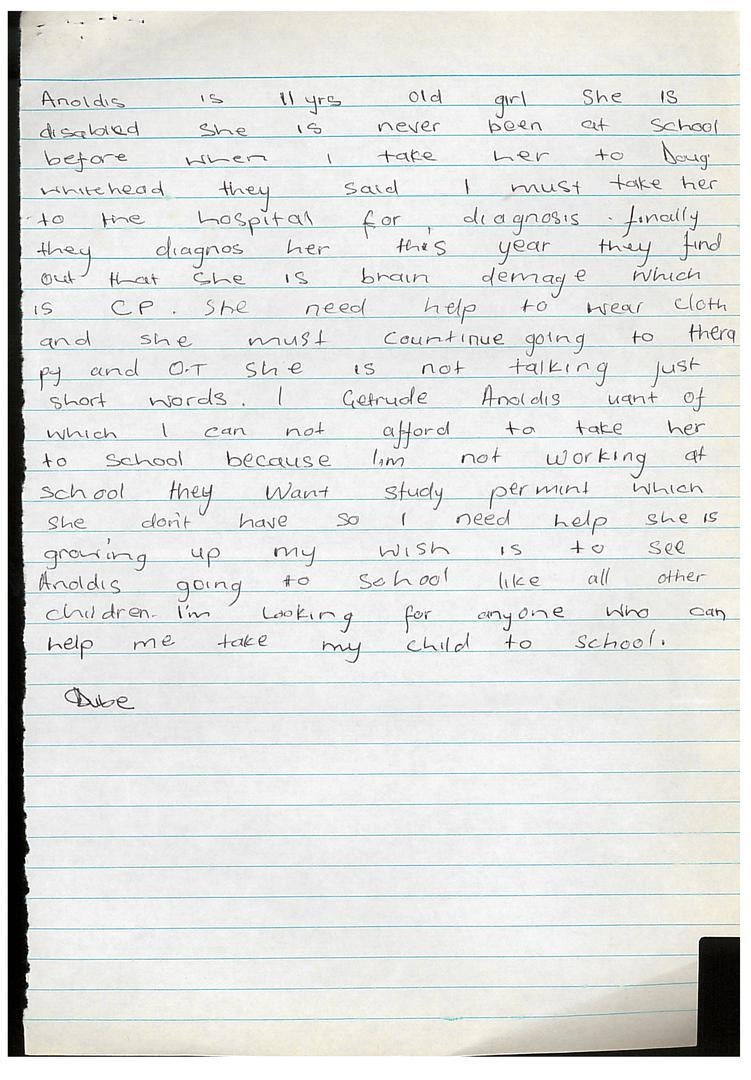 Anoldis is 11 yrs old girl She is
disabled She is never been at School
before when I take her to Doug
whitehead they said I must take her
to the hospital for, diagnosis. finally
they diagnos her this year they find
out that She is brain demage which
is CP. She need help to wear cloth
and she must countinue going to thera
py and O.T She is not talking just
short words. I Getrude Anoldis uant of
which I can not afford to take her
to School because I'm not working at
school they want study permint which
she don't have so I need help she is
growing up my wish is to see
Anoldis going to School like all other
children. I'm Looking for anyone who can
help me take my child to school.
Dube